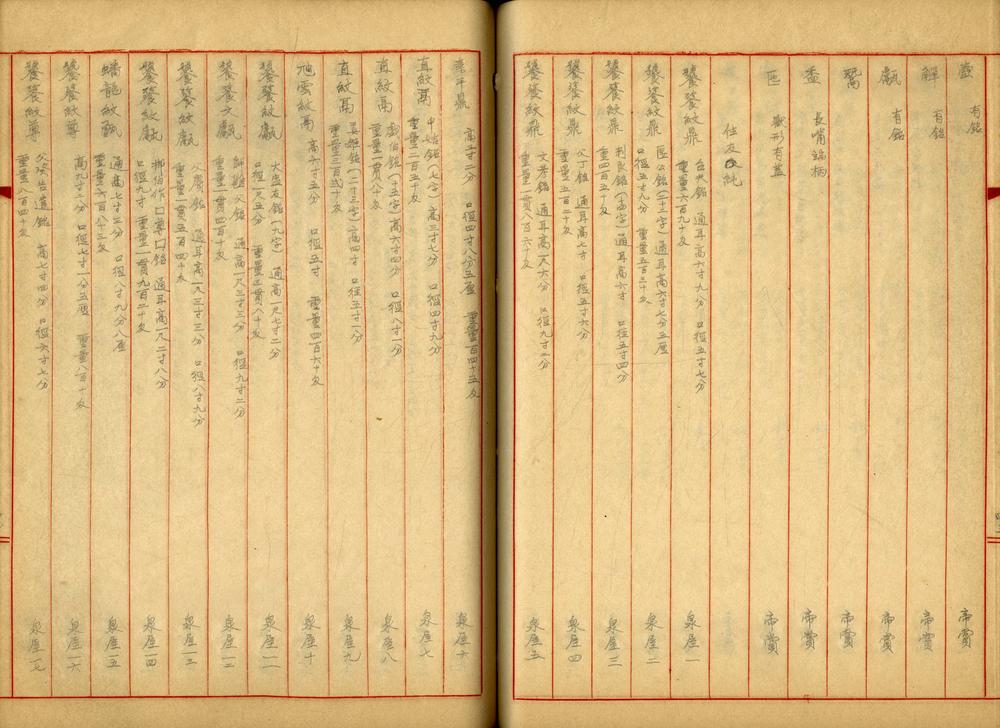 壺 有銘 帝賞
觶 有銘 帝賞
甗 有銘 帝賞
鬹 帝賞
盉 長嘴鋬柄 帝賞
匜 獸形有蓋 帝賞
住友吉純
饕餮紋鼎 通耳高六寸九分 口徑五寸七分 重量六百九十匁 泉屋一
饕餮紋鼎 匽公銘(二十三字) 通耳高六寸七分五厘 口徑五寸九分 重量五百三十匁 泉屋二
饕餮紋鼎 通耳高六寸 口徑五寸四分 重量四百五十匁 泉屋三
饕餮紋鼎 父丁銘 通耳高七寸 口徑五寸六分 重量五百二十匁 泉屋四
饕餮紋鼎 通耳高一尺六分 口徑九寸二分 重量一貫八百六十匁 泉屋五
素文鼎 高三寸二分 口徑四寸八分五厘 重量一百四十五匁 泉屋六
直紋鬲 中姞銘(七字) 高三寸七分 口徑四寸九分 重量二百五十匁 泉屋七
直紋鬲 戲伯銘(十五字) 高六寸四分 口徑八寸一分 重量一貫八十匁 泉屋八
直紋鬲 (二十三字) 高四寸 口徑五寸一分 重量三百弍十匁 泉屋九
虺雲紋鬲 高六寸五分 口徑五寸 重量四百六十匁 泉屋十
饕餮紋甗 (九字) 通高一尺七寸二分 口徑一尺五分 重量三貫八十匁 泉屋一一
饕餮文甗 父銘 通高一尺三寸三分 口徑九寸二分 重量一貫四百十匁 泉屋一二
饕餮紋甗 父庚銘 通耳高一尺三寸三分 口徑八寸九分 重量一貫五百四十匁 泉屋一三
饕餮紋甗 伯作口尊口銘 通耳高一尺二寸八分 口徑九寸 重量一貫九百二十匁 泉屋一四
蟠龍紋甑 通高七寸三分 口徑八寸九分八厘 重量六百八十三匁 泉屋一五
饕餮紋尊 高九寸六分 口徑七寸一分五厘 重量八百十匁 泉屋一六
饕餮紋尊 父癸告道銘 高七寸四分 口徑六寸七分 重量八百四十匁 泉屋一七